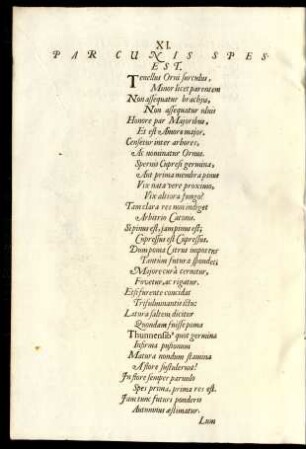 XI.
PAR CUNIS SPES
EST.
Tenellus Orni surculus,
Minor licet parentem
Non assequatur brachijs,
Non assequatur ulnis
Honore par Majoribus,
Et est Amore major.
Censetur inter arbores,
Ac nominatur Ornus.
Spernis Cupressi germina,
Aut prima membra pinus
Vix nata vere proximo,
Vix altiora fungo?
Tam clara res non indiget
Arbitrio Catonis.
Si pinus est, jam pinus est;
Cupressus est Cupressus.
Dum poma Citrus
Tantùm futura spondet;
Majore curâ cernitur,
Fovetur, ac rigatur.
Etsi furente concidat
Trisulminantis ictu:
Latura saltem dicitur
Quondam fuisse poma
quot germina
Infirma pusionum
Matura nondum stamina
A flore sustulerunt?
In flore semper parvulo
Spes prima, prima res est.
Jam tunc futuri ponderis
Autumnus æstimatur.
Lum